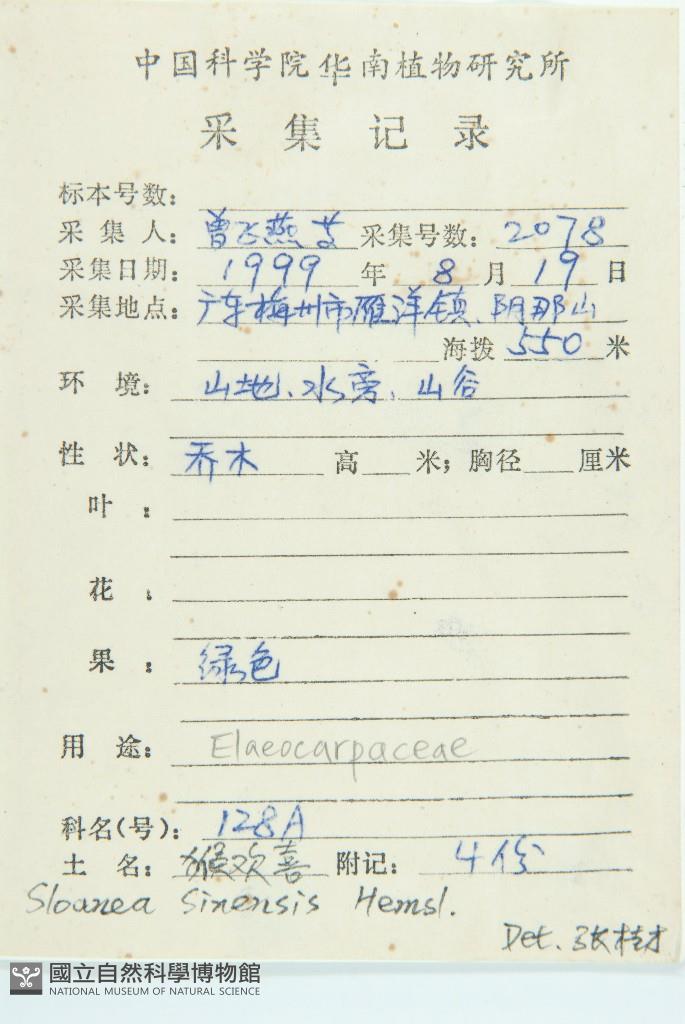 中国科学院华南植物研究所
采集记录
标本号数:
采集人: 曾飞燕等 采集号数: 2078
采集日期: 1999 年 8 月 19 日
采集地点: 广东梅州市雁洋镇、阴那山
海拨 550 米
环境: 山地、水旁、山谷
性状: 乔木 高 米; 胸径 厘米
叶:
花:
果: 绿色
用途: Elaeocarpaceae
科名(号): 128A
土名: 猴欢喜 附记: 4份
Sloanea sinensis Hemsl.
Det. 张桂才
國立自然科學博物館
NATIONAL MUSEUM OF NATURAL SCIENCE